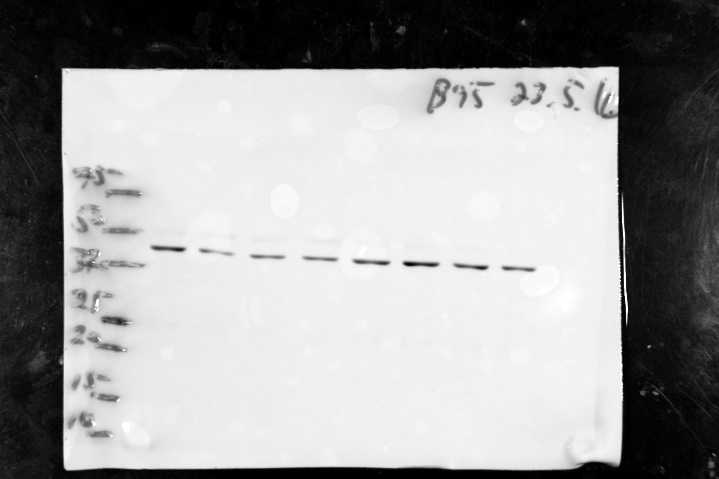 B95 23.5.
75
50
37
25
20
15
10